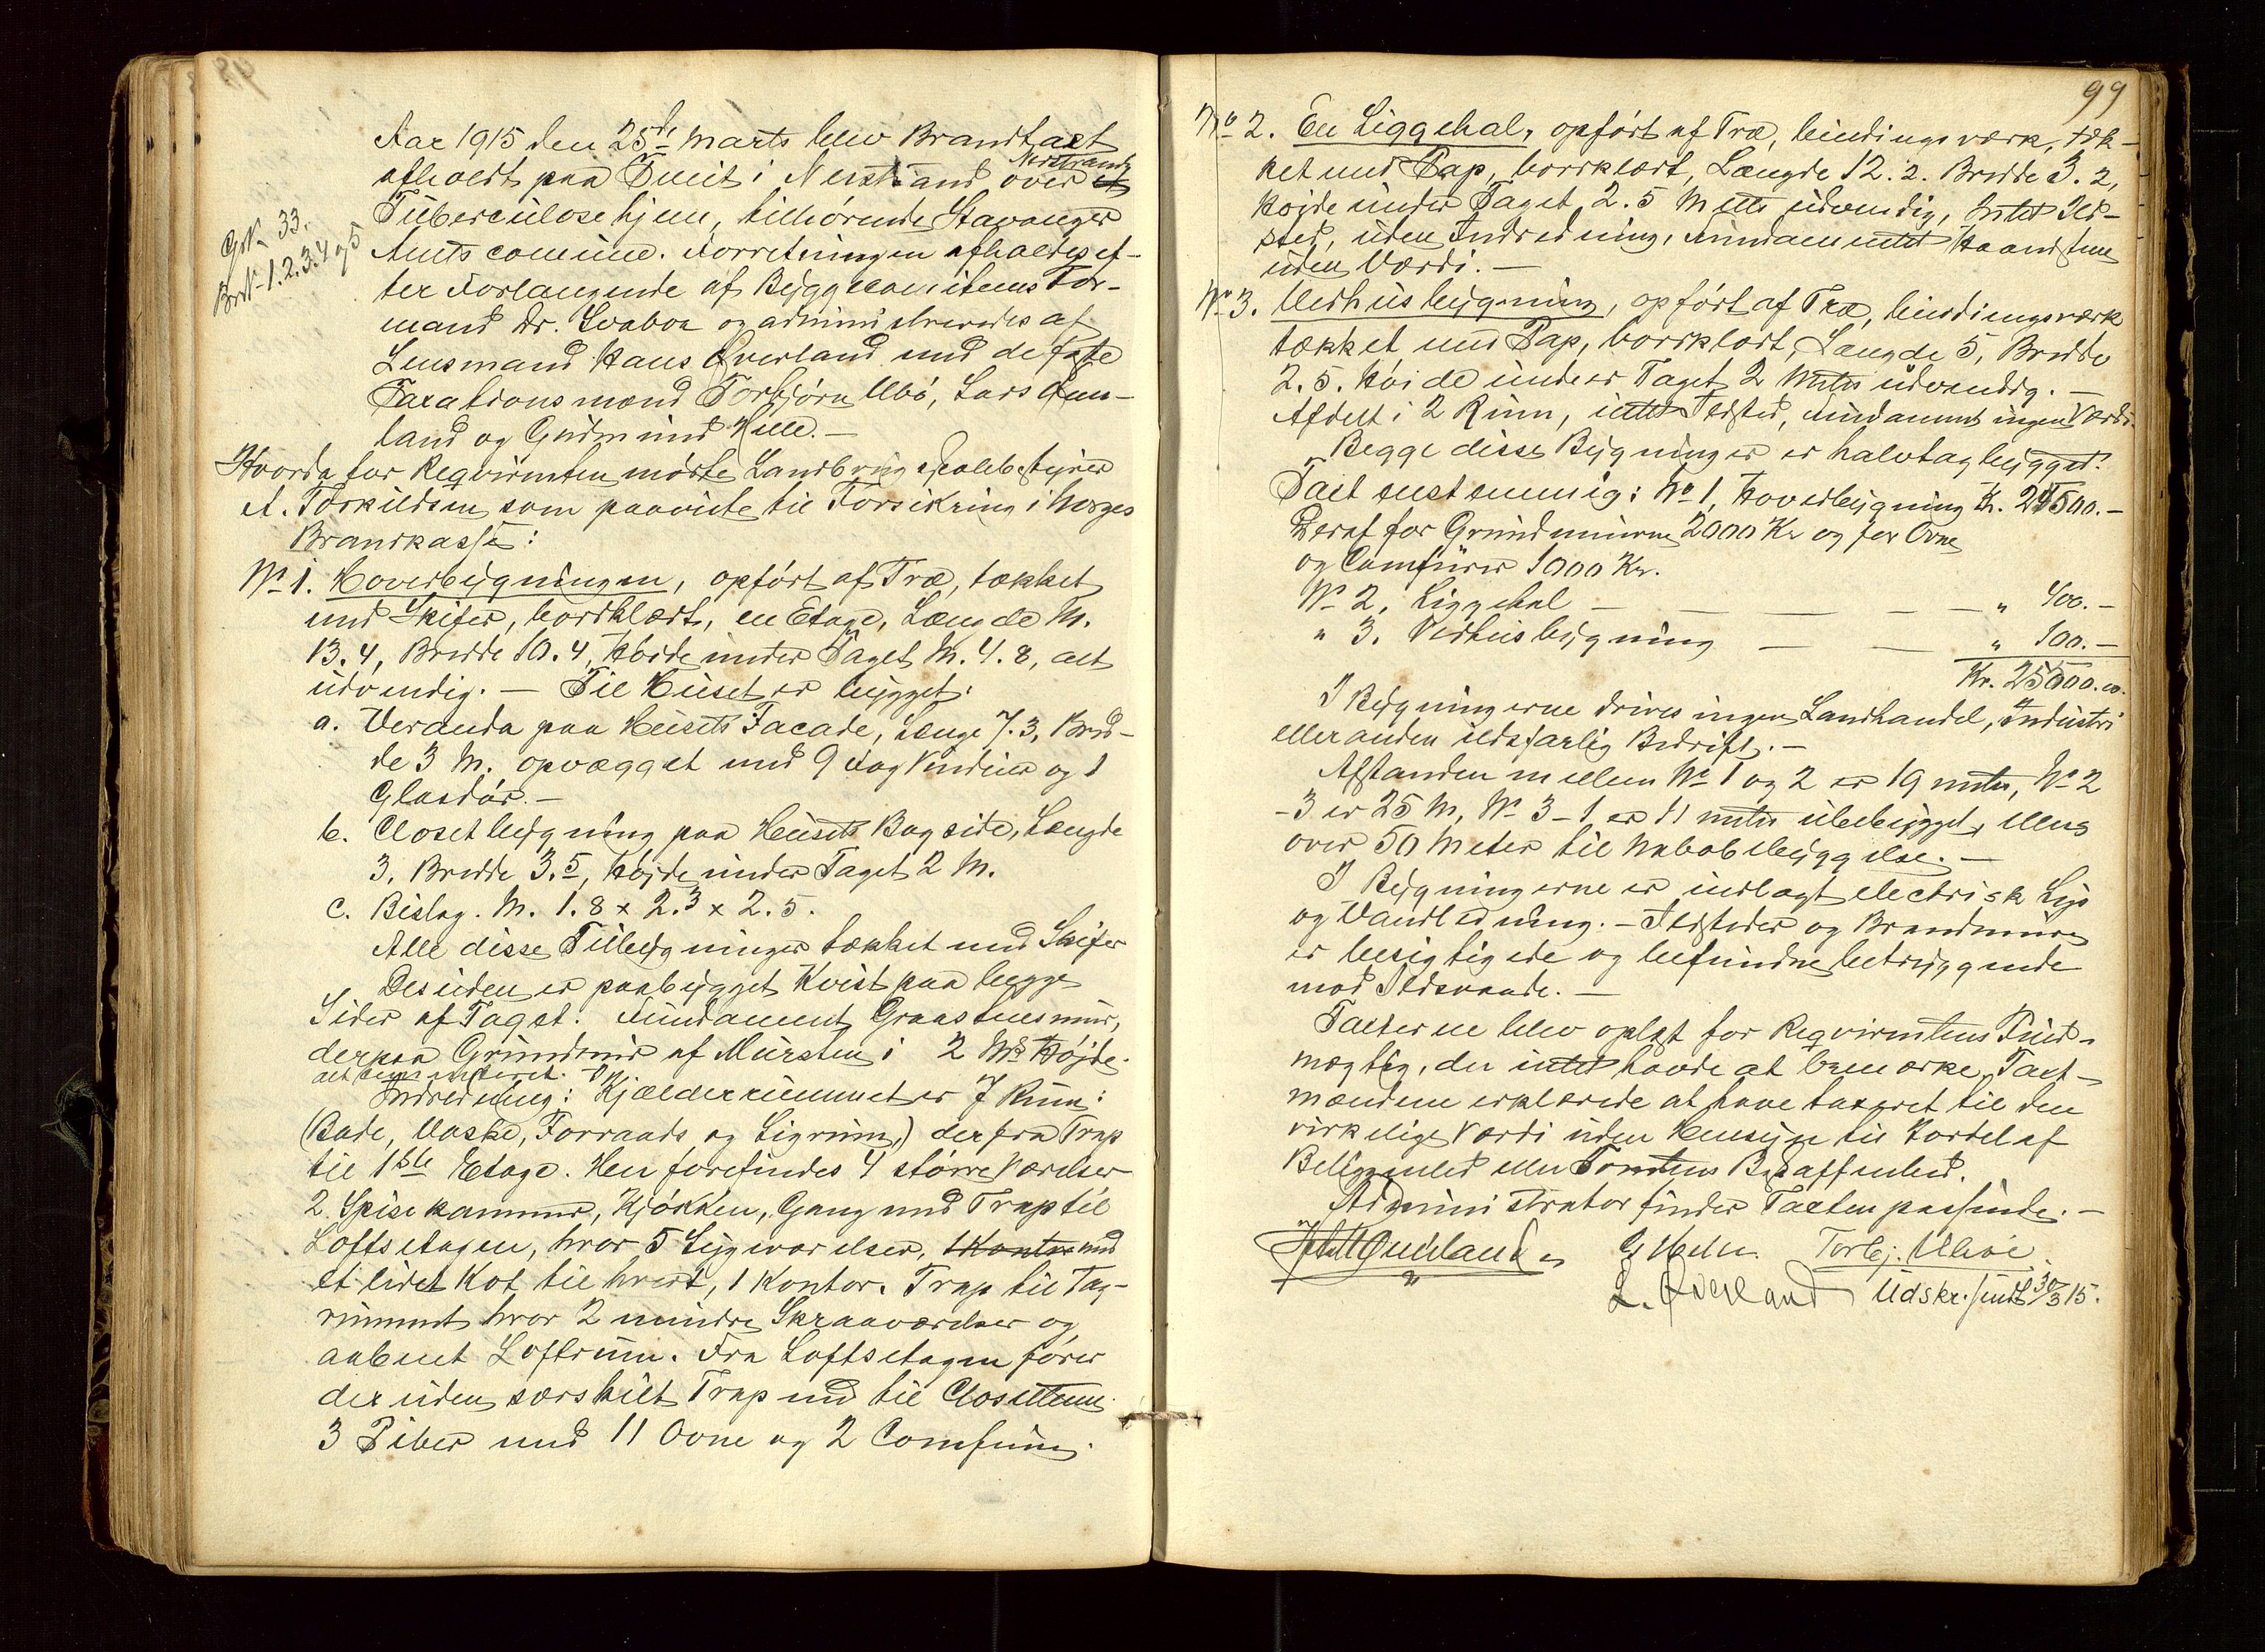 Aar 1915 den 25de Marts blev Brandtaxt
afholdt paa Tveit i Nerstrand over Nerstrands
Tuberculosehjem, tilhørende Stavanger
Gsk. 33.
Brk. 1. 2. 3. 4 og 5
Amts comune. Forretningen afholdes ef-
ter Forlangende af Byggecomiteens For-
mand Dr. Svaboe og administreredes af
Lensmand Hans Qverland med de faste
Taxationsmænd Torbjørn Ubø, Lars Qver-
land og Gudmund Helle. —
Hvorda for Reqvirenten mødte Landbrugsskolebestyrer
A. Torkildsen som paaviste til Forsikring i Norges
Brandkasse:
No 1. Hovedbygningen, opført af Træ, tækket
med Skifer, bordklædt, en Etage, Længde M.
13.4, Bredde 10.4, Høide under Taget M. 4.8, alt
udvendig. — Til Huset er bygget:
a. Veranda paa Husets Facade, Længe 7.3, Bred-
de 3 M. opvægget med 9 Fag Vinduer og 1
Glasdør. —
b. Closetbygning paa Husets Bagside, Længde
3, Bredde 3.5, Høide under Taget 2 M.
c. Bislag. M. 1.8 x 2.3 x 2.5.
Alle disse Tilbygninger tækket med Skifer
Desuden er paabygget Kvist paa begge
Sider af Taget. Fundament Graastensmur,
derpaa Grundmur af Mursten i 2 M's Høide.
alt cementeret.
Indredning: Kjælderrummet er 7 Rum:
(Bade, Vaske, Forraads og Ligrum,) der fra Trap
til 1ste Etage. Her forefindes 4 større Værelser
2 Spisekammer, Kjøkken, Gang med Trap til
Loftsetagen, hvor 5 Sygeværelser, 1 Kontor med
et lidet Kot til hvert, 1 Kontor. Trap til Tag-
rummet hvor 2 mindre Skraaværelser og
aabent Loftrum. Fra Loftsetagen fører
der uden særskilt Trap ned til Closetterne
3 Piber med 11 Ovne og 2 Comfurer.
99
No 2. En Liggehal, opført af Træ, bindingsværk, tæk-
ket med Pap, bordklædt, Længde 12.2. Bredde 3.2,
Høide under Taget 2.5 Mettr udvendig, Intet Ild-
sted, uden Indredning, Fundamentet Haandstene
uden Værdi. —
No 3. Vedhusbygning, opført af Træ, bindingsværk
tækket med Pap, bordklædt, Længde 5, Bredde
2.5. Høide under Taget 2 Meter udvendig. —
Afdelt i 2 Rum, intet Ildsted, Fundament ingen Værdi.
Begge disse Bygninger er halvtagbygget.
Taxt enstemmig: No 1, Hovedbygning Kr. 24500.—
Deraf for Grundmurene 2000 Kr og for Ovne
og Comfurer 1000 Kr.
No 2, Liggehal — — — — — " 400.—
" 3. Vedhusbygning — — " 100.—
Kr. 25000.00.
I Bygningerne drives ingen Landhandel, Industri
eller anden ildsfarlig Bedrift. —
Afstanden mellem No 1 og 2 er 19 meter, No 2
-3 er 25 M, No 3-1 er 11 meter ubebygget, ellers
over 50 Meter til Nabobebyggelse. —
I Bygningerne er indlagt electrisk Lys
og Vandledning. — Ildsteder og Brandmure
er besigtigede og befundne betryggende
mod Ildsvaade. —
Taxterne blev oplæst for Reqvirentens Fuld-
mægtig, der intet havde at bemærke. Taxt-
mændene erklærede at have taxeret til den
virkelige Værdi uden Hensyn til Fordel af
Beliggenhed eller Tomtens Beskaffenhed.
Administrator finder Taxten passende. —
Qverland G Helle Torbj. Ubøe
L. Qverland Udskr. sendt 30/3 15.